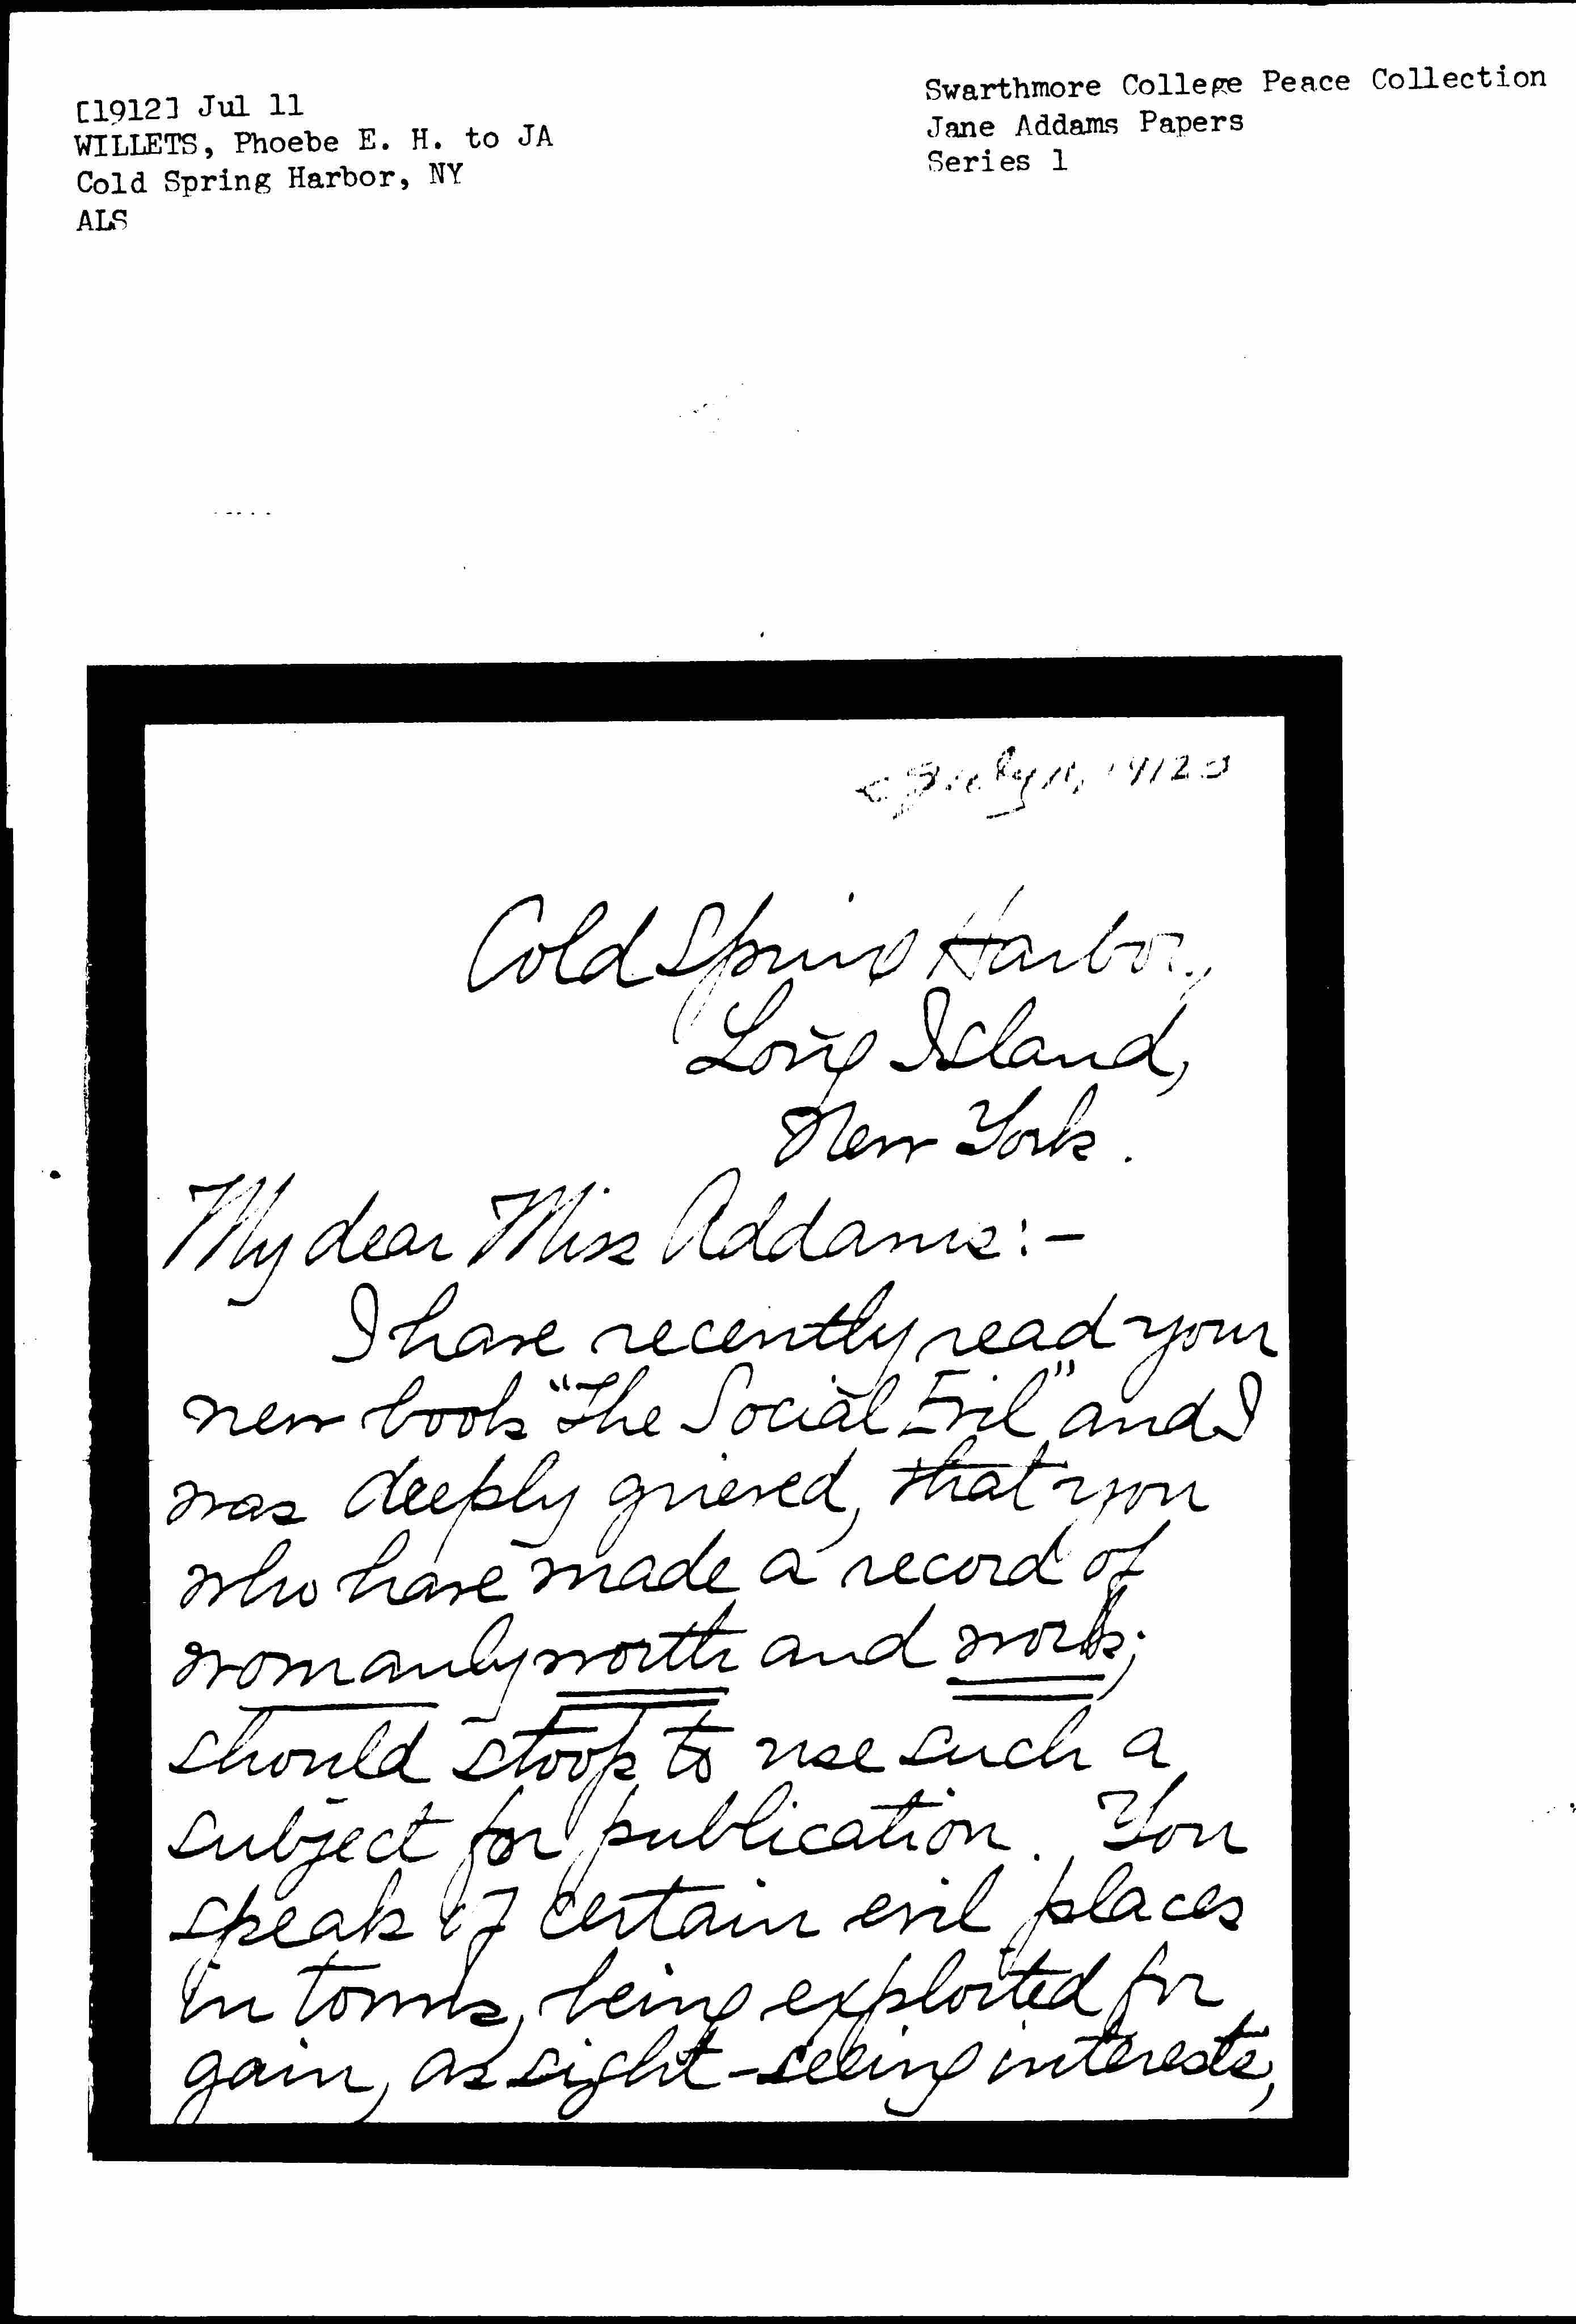 [1912] Jul 11
WILLETS, Phoebe E. H. to JA
Cold Spring Harbor, NY
ALS
Swarthmore College Peace Collection
Jane Addams Papers
Series 1
[July 11, 1912]
Cold Spring Harbor,
Long Island,
New York.
My dear Miss Addams:-
I have recently read your
new book "The Social Evil" and I
was deeply grieved, that you
who have made a record of
womanly worth and work;
should stoop to use such a
subject for publication. You
speak of certain evil places
in towns, being exploited for
gain, as sight-seeing interests,